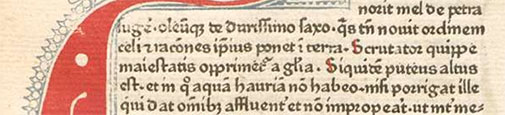 norit mel de petra
sugeť. oleūq; de durissimo saxo. q̄s tñ novit ordinem
celi ⁊ rac̄ones ip̄ius ponet ī terra. Scrutator quippe
maiestatis opprimet᷑ a gl̄ia. Siquidē puteus altus
est. et in q̄ aquā hauriā nō habeo. nisi porrigat ille
qui dat om̄ib; affluent᷑ et nō improp̲eat. ut mr̄ me-